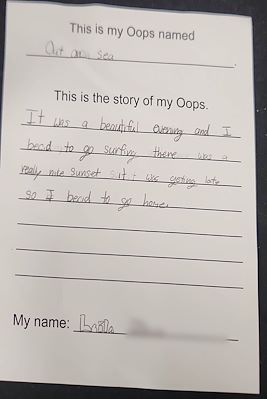 This is my Oops named
Out sea
This is the story of my Oops.
It was a beautiful evening and I
becid to go surfing there was a
really nice sunset it was geting late
so I becid to go home.
My name: